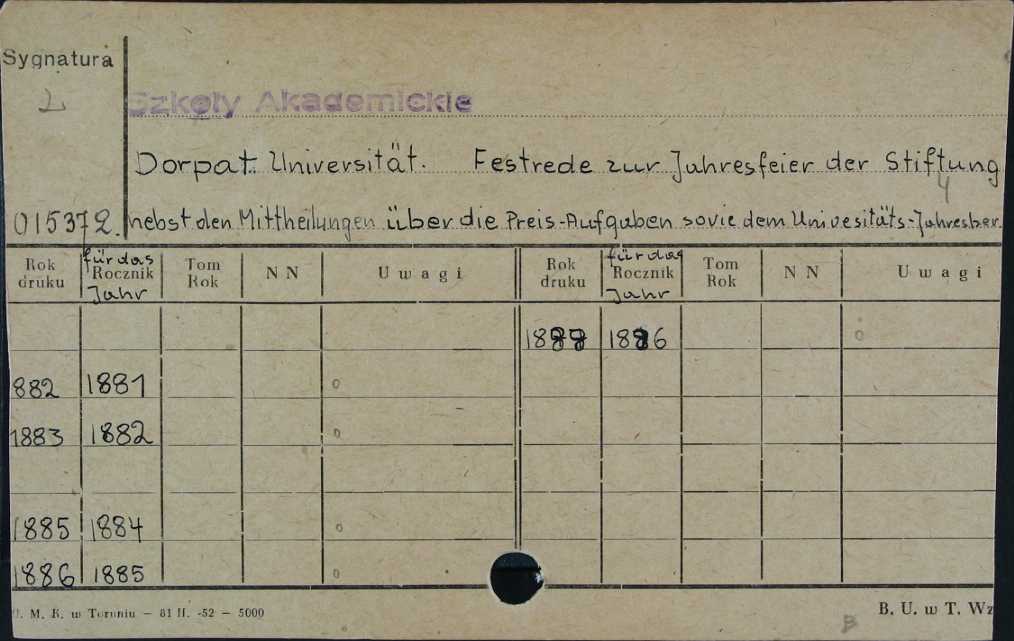 Sygnatura
Szkoły Akademickie
Dorpat. Universität. Festrede zur Jahresfeier der Stiftung
4
015372. nebst den Mittheilungen über die Preis-Aufgaben sowie dem Univesitäts-Jahresber.
für das für das
Rok druku Rocznik Tom Rok NN Uwagi Rok druku Rocznik Tom Rok NN Uwagi
Jahr Jahr
1886 o
882 1881 o
1883 1882 o
1885 1884 o
1886 1885 o
U. M. K. w Toruniu — 81 II. -52 — 5000
B. U. w T. Wz
B